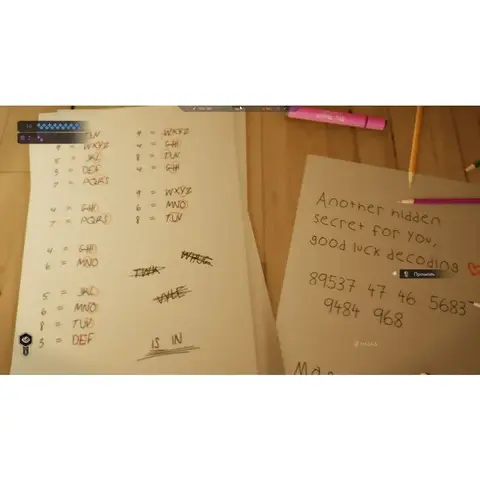 TUV
9 = WXYZ
5 = JKL
3 = DEF
7 = PQRS
4 = GHI
7 = PQRS
4 = GHI
6 = MNO
5 = JKL
6 = MNO
8 = TUV
3 = DEF
9 = WXYZ
4 = GHI
8 = TUV
4 = GHI
9 = WXYZ
6 = MNO
8 = TUV
VYLE
IS IN
Another hidden
secret for you,
good luck decoding
89537 47 46 5683
9484 968